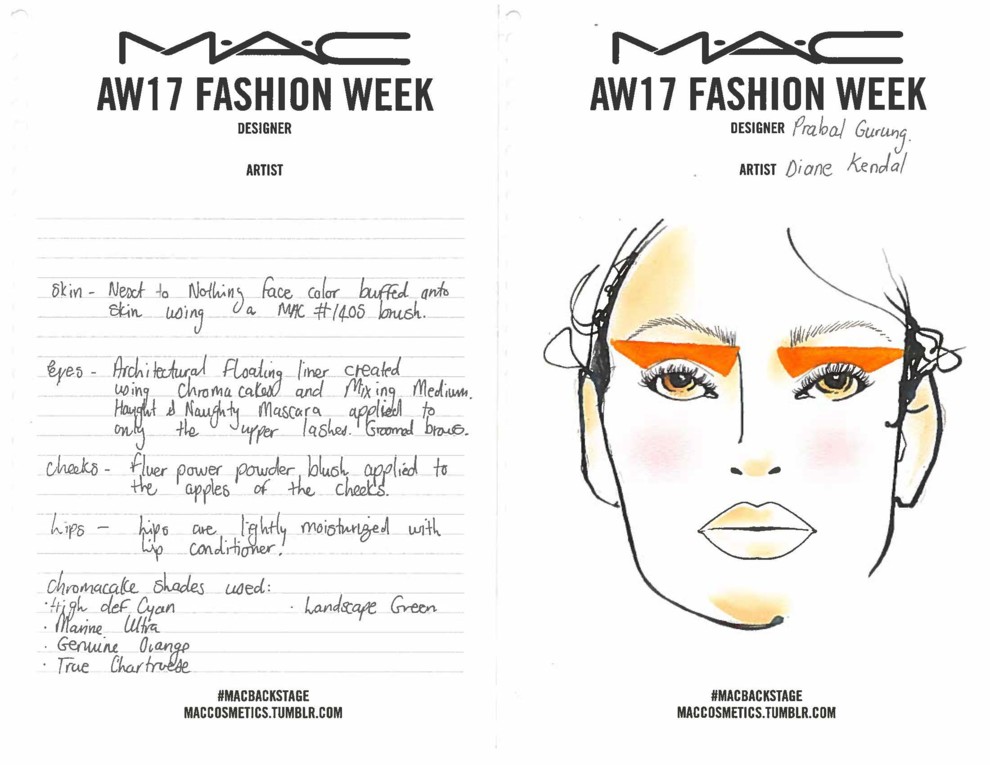 M·A·C
AW17 FASHION WEEK
DESIGNER
ARTIST
Skin - Next to Nothing face color buffed onto
skin using a MAC #140S brush.
Eyes - Architectural Floating liner created
using Chromacakes and Mixing Medium.
Haught & Naughty Mascara applied to
only the upper lashes. Groomed brows.
Cheeks - fluer power powder blush applied to
the apples of the cheeks.
Lips - Lips are lightly moisturized with
lip conditioner!
Chromacake shades used:
· High def Cyan · Landscape Green
· Marine Ultra
· Genuine Orange
· True Chartruese
#MACBACKSTAGE
MACCOSMETICS.TUMBLR.COM
M·A·C
AW17 FASHION WEEK
DESIGNER Prabal Gurung.
ARTIST Diane Kendal
#MACBACKSTAGE
MACCOSMETICS.TUMBLR.COM